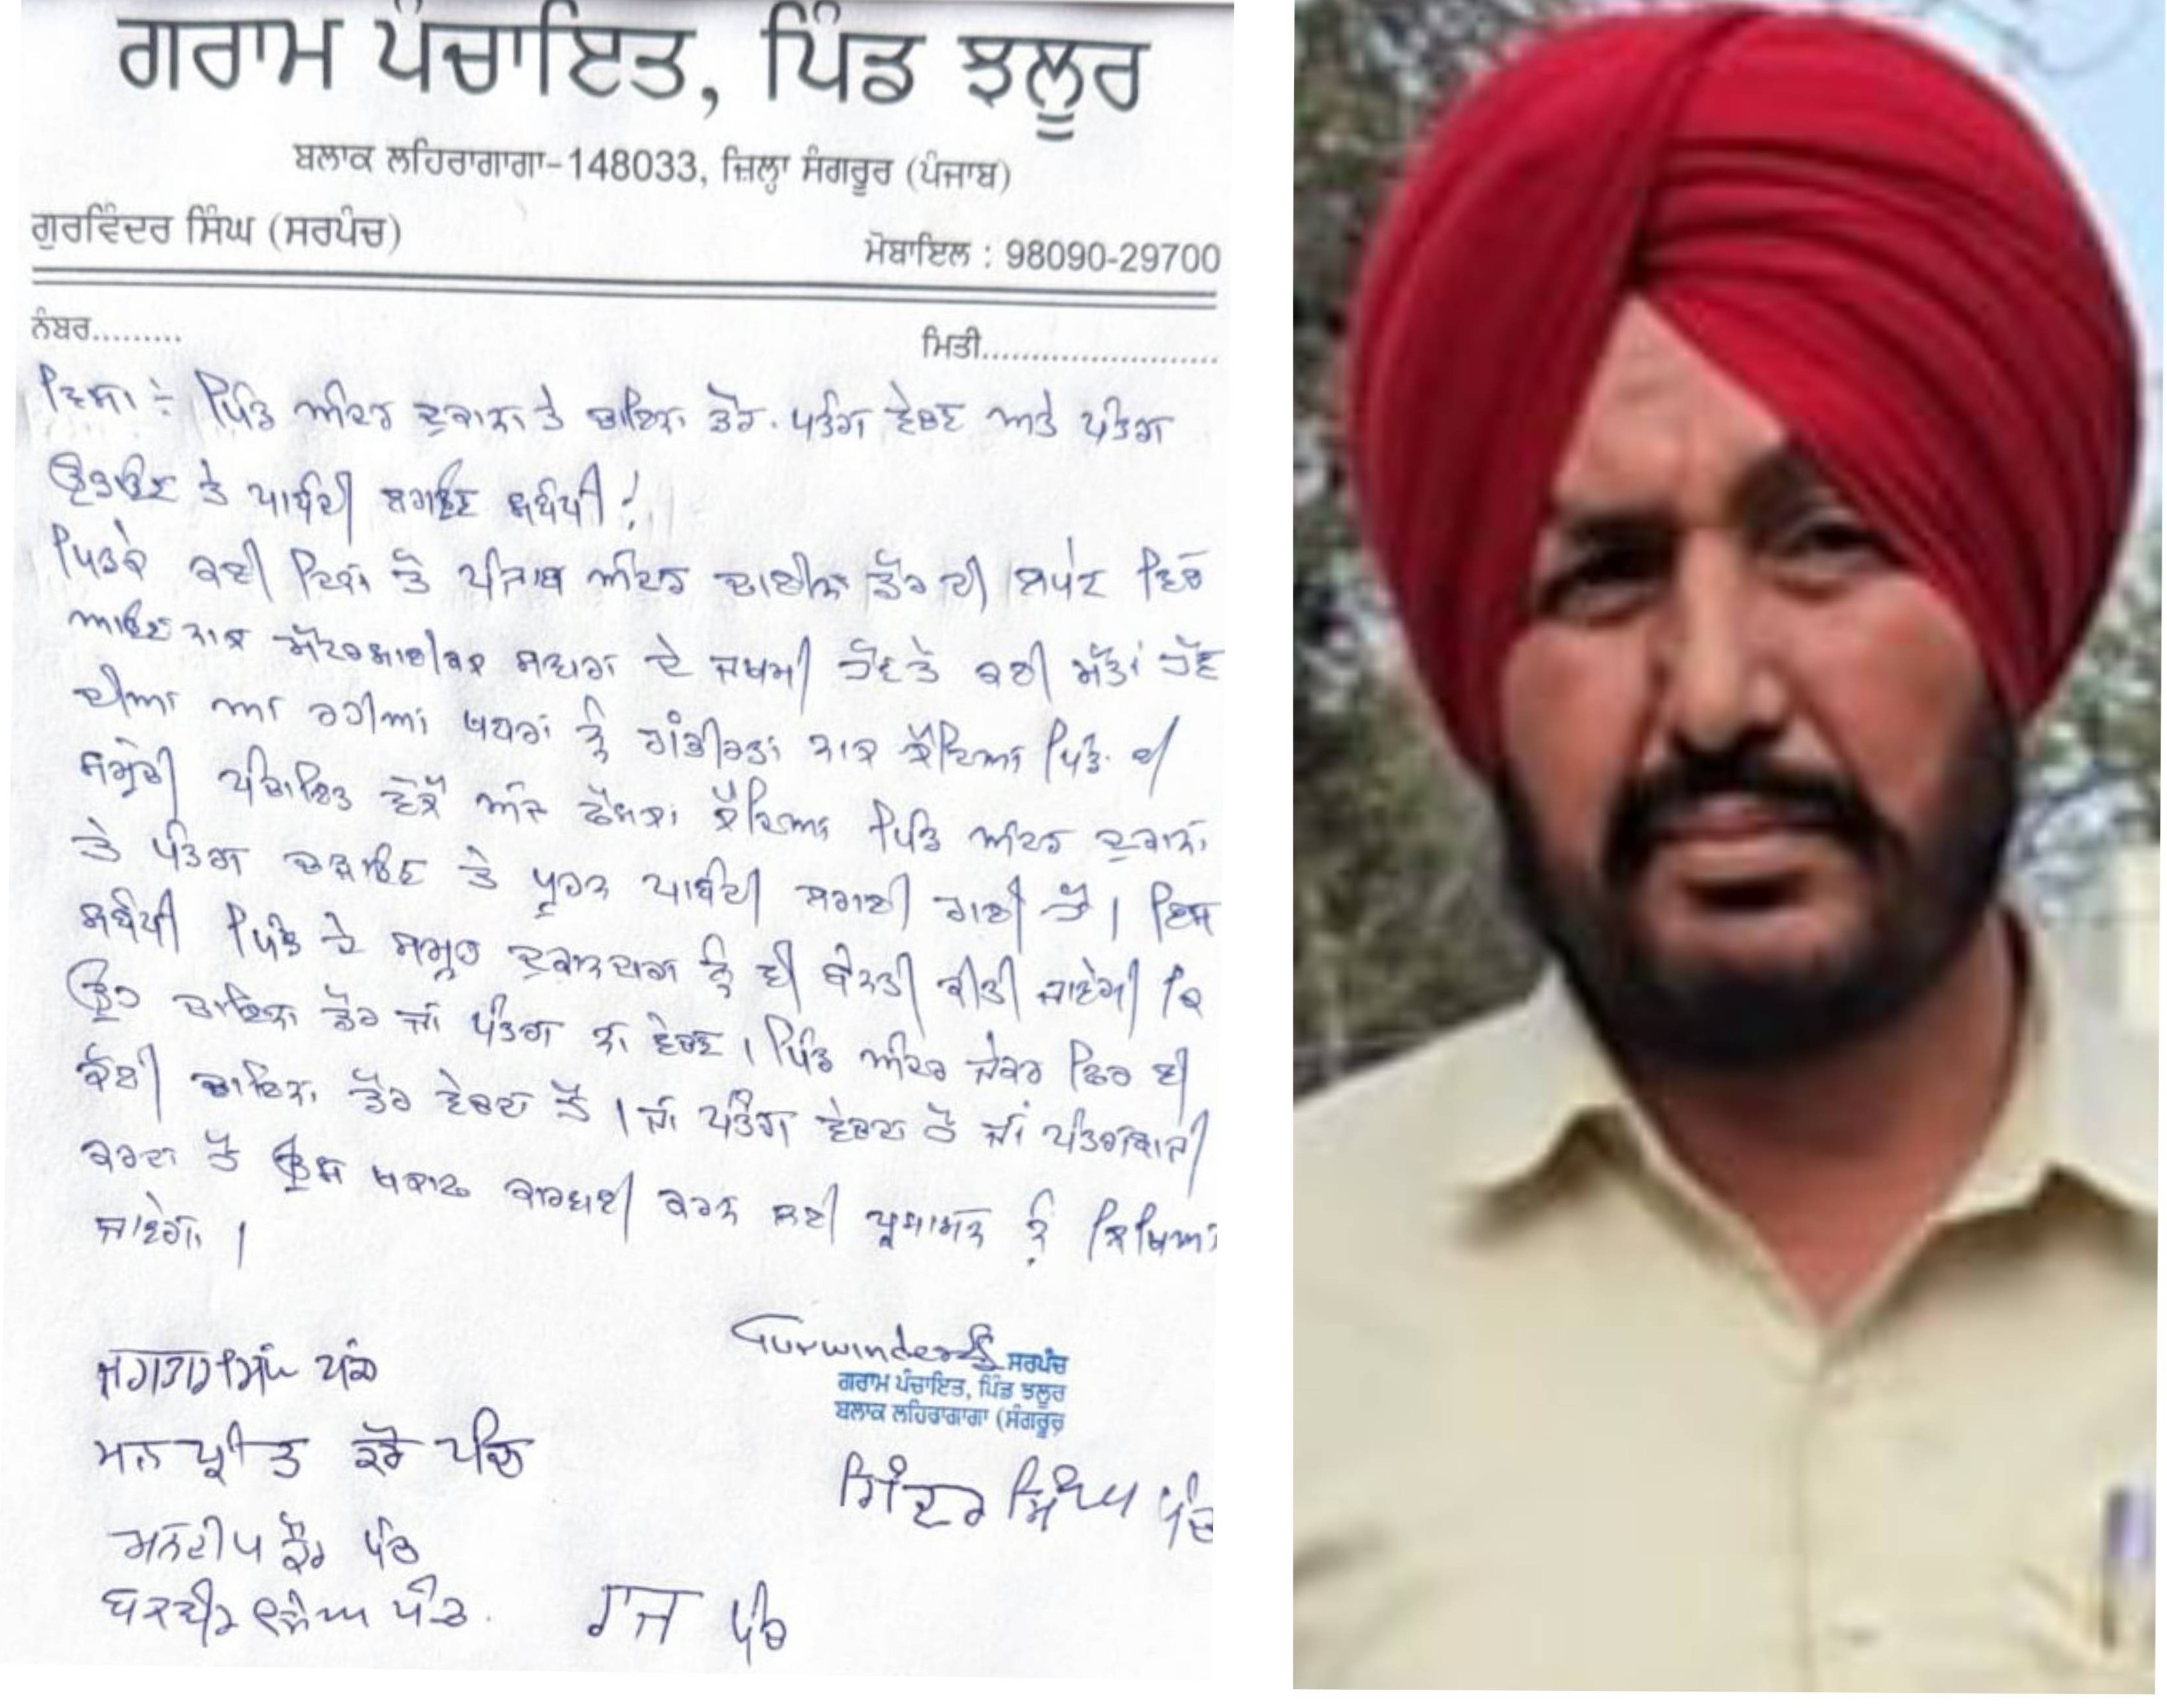 ਗਰਾਮ ਪੰਚਾਇਤ, ਪਿੰਡ ਝਲੂਰ
ਬਲਾਕ ਲਹਿਰਾਗਾਗਾ-148033, ਜ਼ਿਲ੍ਹਾ ਸੰਗਰੂਰ (ਪੰਜਾਬ)
ਗੁਰਵਿੰਦਰ ਸਿੰਘ (ਸਰਪੰਚ)
ਮੋਬਾਇਲ : 98090-29700
ਨੰਬਰ.........
ਮਿਤੀ........................
ਵਿਸ਼ਾ :- ਪਿੰਡ ਅੰਦਰ ਦੁਕਾਨਾਂ ਤੇ ਚਾਇਨਾ ਡੋਰ. ਪਤੰਗ ਵੇਚਣ ਅਤੇ ਪਤੰਗ
ਉਡਾਉਣ ਤੇ ਪਾਬੰਦੀ ਲਗਾਉਣ ਸਬੰਧੀ !
ਪਿਛਲੇ ਕਈ ਦਿਨਾਂ ਤੋਂ ਪੰਜਾਬ ਅੰਦਰ ਚਾਈਨਾ ਡੋਰ ਦੀ ਲਪੇਟ ਵਿੱਚ
ਆਉਣ ਨਾਲ ਮੋਟਰਸਾਈਕਲ ਸਵਾਰਾਂ ਦੇ ਜਖਮੀ ਹੋਣ ਤੇ ਕਈ ਮੌਤਾਂ ਹੋਣ
ਦੀਆਂ ਆ ਰਹੀਆਂ ਖਬਰਾਂ ਨੂੰ ਗੰਭੀਰਤਾ ਨਾਲ ਲੈਂਦਿਆਂ ਪਿੰਡ ਦੀ
ਸਮੁੱਚੀ ਪੰਚਾਇਤ ਵੱਲੋਂ ਅੱਜ ਫੈਸਲਾ ਲੈਂਦਿਆਂ ਪਿੰਡ ਅੰਦਰ ਦੁਕਾਨਾਂ
ਤੇ ਪਤੰਗ ਚੜਾਉਣ ਤੇ ਪੂਰਨ ਪਾਬੰਦੀ ਲਗਾਈ ਗਈ ਹੈ। ਇਸ
ਸਬੰਧੀ ਪਿੰਡ ਦੇ ਸਮੂਹ ਦੁਕਾਨਦਾਰਾਂ ਨੂੰ ਵੀ ਬੇਨਤੀ ਕੀਤੀ ਜਾਵੇਗੀ ਕਿ
ਉਹ ਚਾਇਨਾ ਡੋਰ ਜਾਂ ਪਤੰਗ ਨਾ ਵੇਚਣ। ਪਿੰਡ ਅੰਦਰ ਜੇਕਰ ਫਿਰ ਵੀ
ਕੋਈ ਚਾਇਨਾ ਡੋਰ ਵੇਚਦਾ ਹੈ। ਜਾਂ ਪਤੰਗ ਵੇਚਦਾ ਹੈ ਜਾਂ ਪਤੰਗਬਾਜੀ
ਕਰਦਾ ਹੈ ਉਸ ਖਿਲਾਫ ਕਾਰਵਾਈ ਕਰਨ ਲਈ ਪ੍ਰਸ਼ਾਸਨ ਨੂੰ ਲਿਖਿਆ
ਜਾਵੇਗਾ।
Gurwinder ਸਰਪੰਚ
ਗਰਾਮ ਪੰਚਾਇਤ, ਪਿੰਡ ਝਲੂਰ
ਬਲਾਕ ਲਹਿਰਾਗਾਗਾ (ਸੰਗਰੂਰ)
ਜਗਤਾਰ ਸਿੰਘ ਪੰਚ
ਮਨਪ੍ਰੀਤ ਕੌਰ ਪੰਚ
ਮਨਦੀਪ ਕੌਰ ਪੰਚ
ਪੰਚ
ਰਾਜ ਪੰਚ
ਸਿੰਘ ਪੰਚ